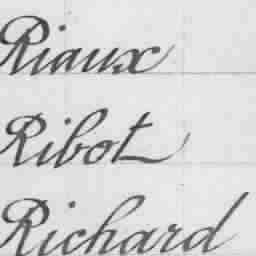 Riaux
Ribot
Richard